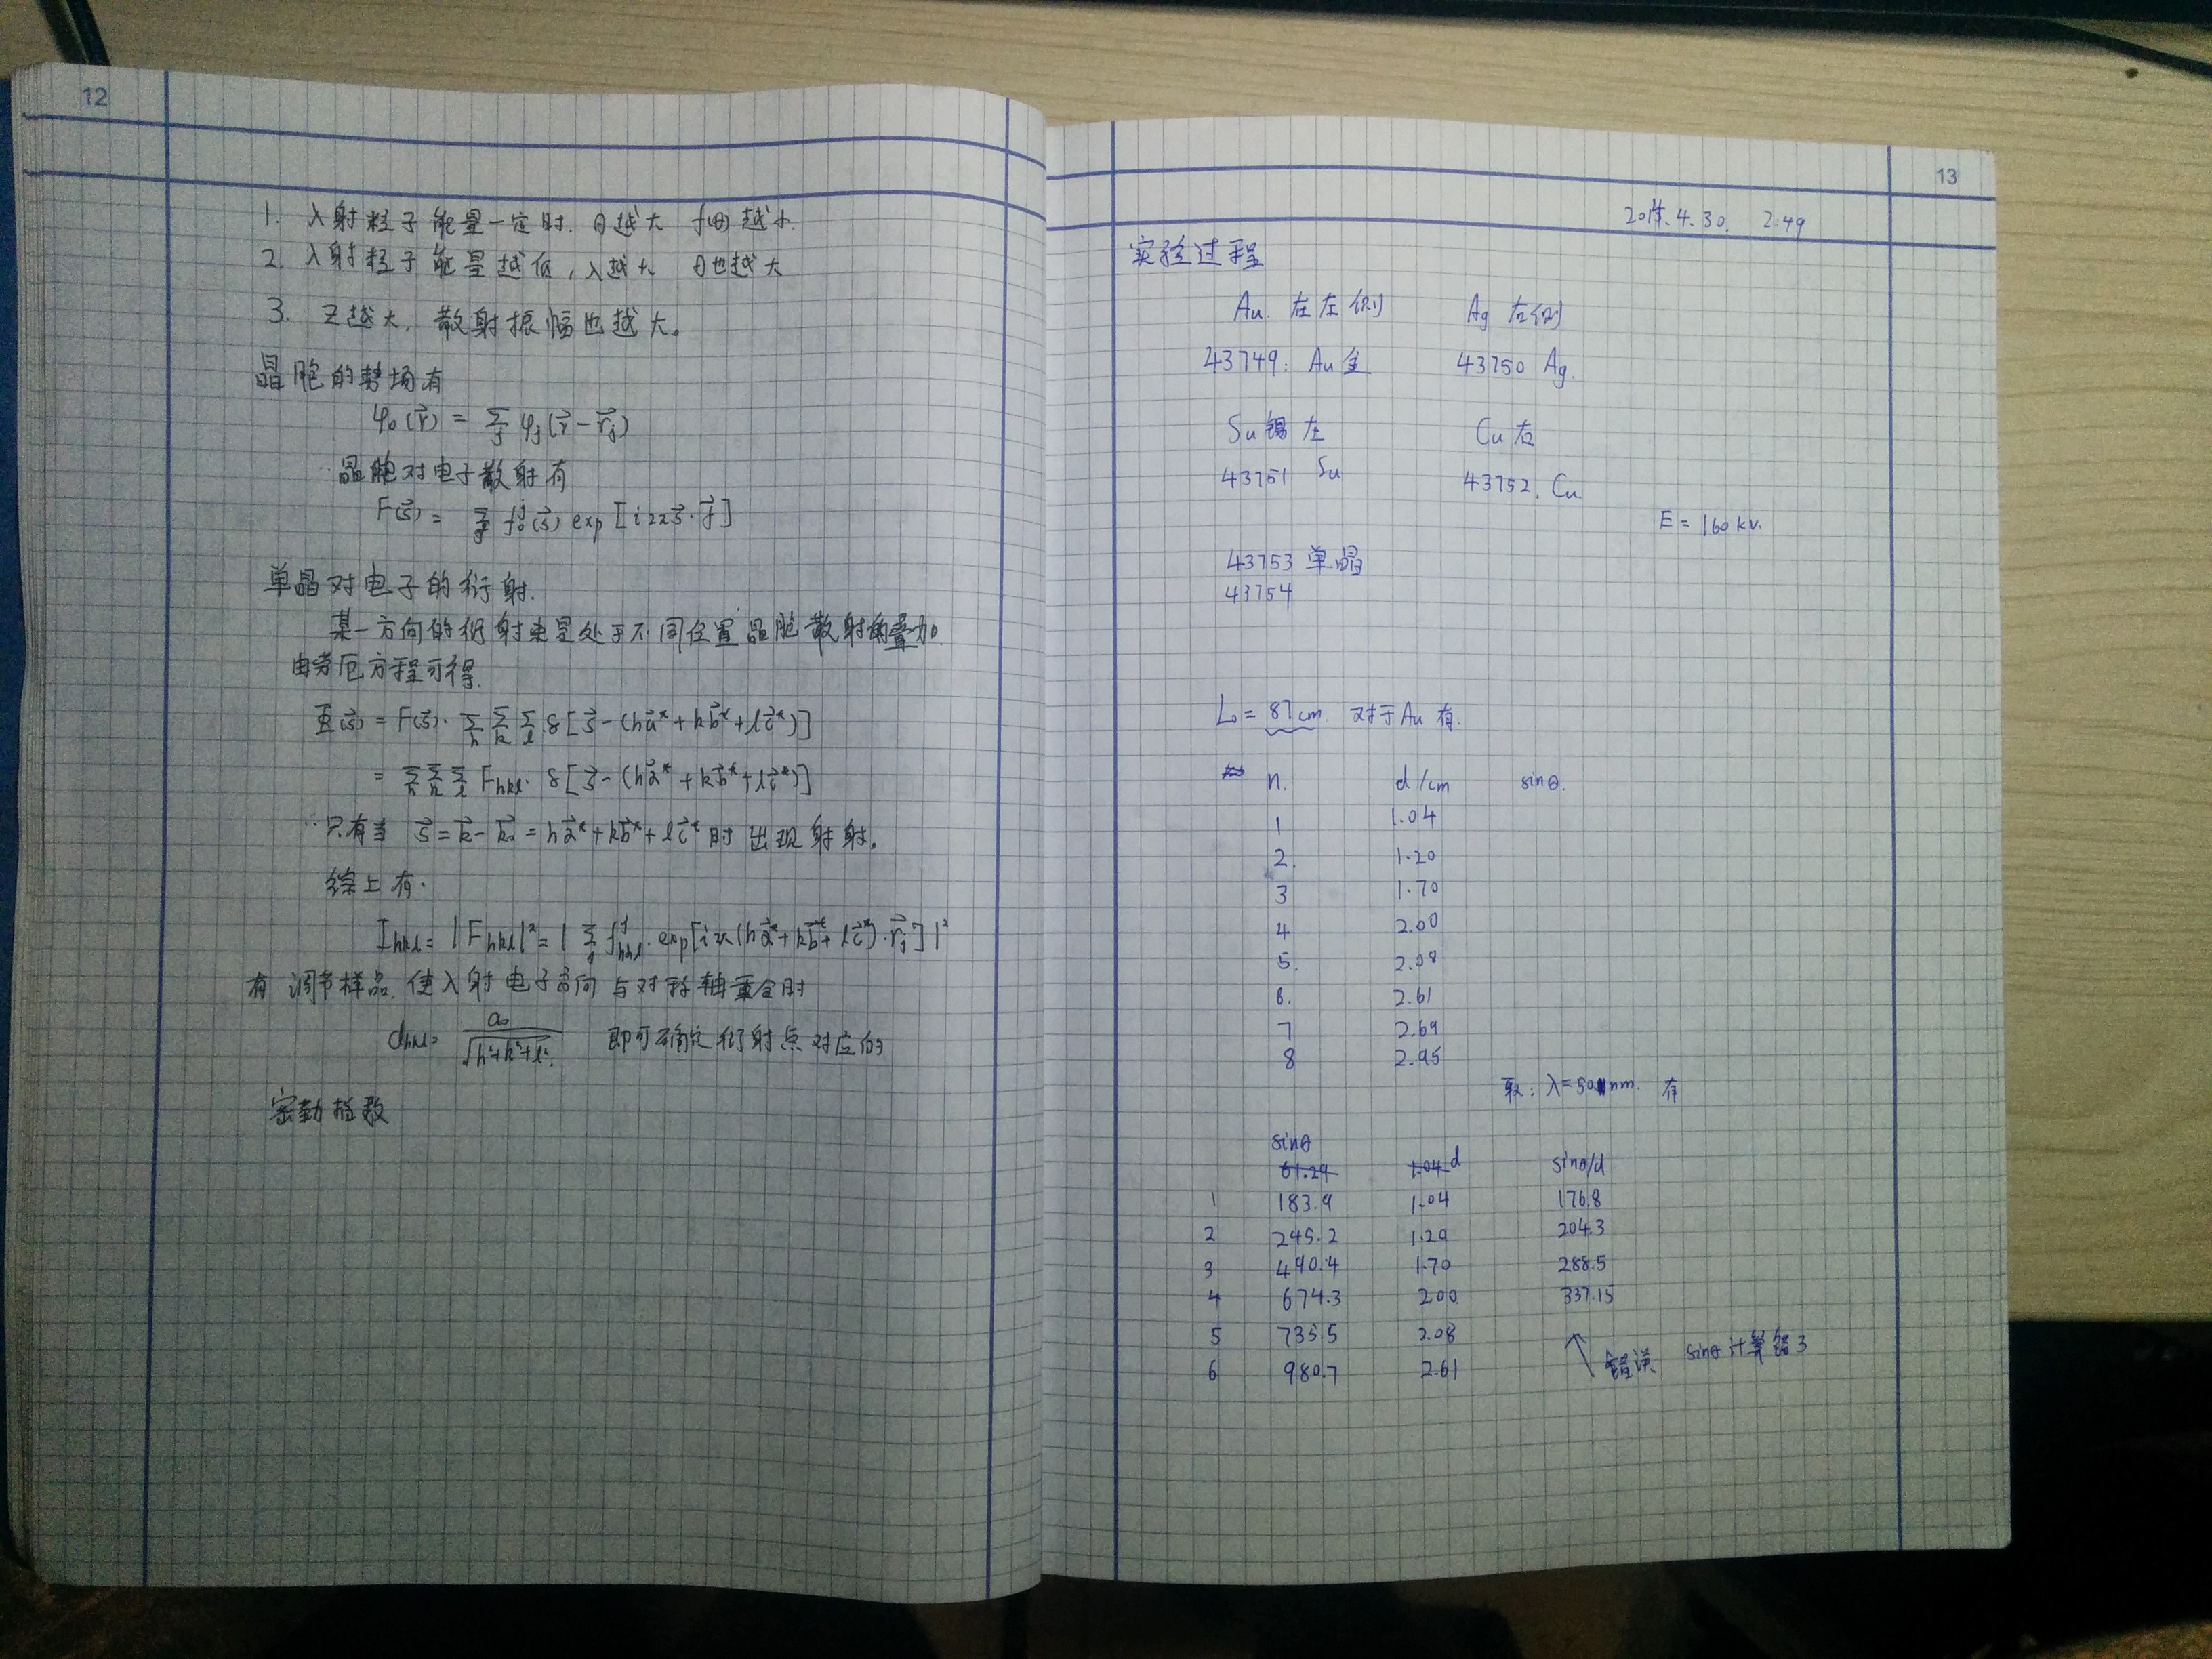 12
1. 入射粒子能量一定时. θ越大 f(θ)越小.
2. 入射粒子能量越低, λ越大 θ也越大
3. Z越大, 散射振幅也越大。
晶胞的势场有
φ₀(r⃗) = Σ_j φ_j(r⃗ - r⃗_j)
∴晶胞对电子散射有
F(s⃗) = exp [i2π s⃗·
单晶对电子的衍射.
某一方向的衍射束是处于不同位置晶胞散射的叠加.
由劳厄方程可得.
Φ(s⃗) = F(s⃗)· Σ_h Σ_k Σ_l δ[s⃗ - (ha⃗* + kb⃗* + lc⃗*)]
= Σ_h Σ_k Σ_l F_hkl· δ[s⃗ - (ha⃗* + kb⃗* + lc⃗*)]
∴只有当 s⃗ = k⃗ - k⃗₀ = ha⃗* + kb⃗* + lc⃗* 时 出现射射。
综上有.
I_hkl = |F_hkl|² = | Σ_j f^j_hkl · exp[i2π(ha⃗* + kb⃗* + lc⃗*)·r⃗_j] |²
有 调节样品. 使入射电子方向与对称轴重合时
d_hkl = a₀/√(h²+k²+l²) 即可确定衍射点对应的
密勒指数
13
4.30. 2:49
实验过程
Au. 在左侧 Ag 右侧
43749: Au金 43750 Ag.
Su 锡 左 Cu 右
43751 Su 43752. Cu
E = 160 kV.
43753 单晶
43754
L = 87 cm. 对于Au有:
n. d/cm sinθ.
1 1.04
2. 1.20
3 1.70
4 2.00
5. 2.08
6. 2.61
7 2.69
8 2.95
取: λ= nm. 有
sinθ
61.24 1.04 d sinθ/d
1 183.9 1.04 176.8
2 245.2 1.20 204.3
3 490.4 1.70 288.5
4 674.3 2.00 337.15
5 735.5 2.08
6 980.7 2.61
错误 sinθ计算错了